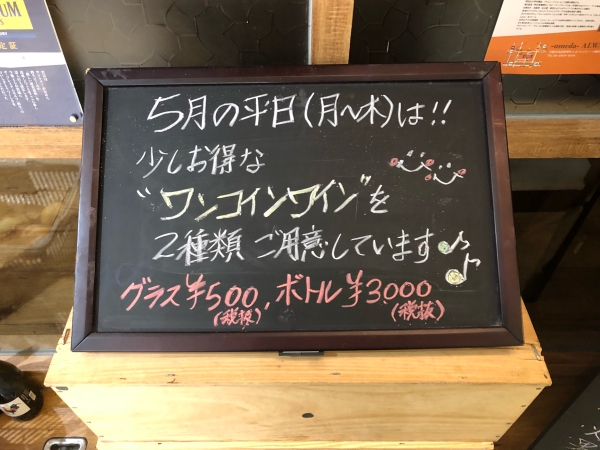 UM
定証
-umeda- ALWA
5月の平日(月〜木)は!!
少しお得な
"ワンコインワイン"を
2種類 ご用意しています
グラス¥500, ボトル¥3000
(税抜) (税抜)